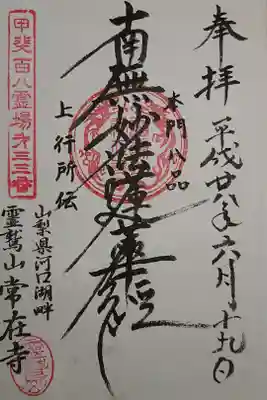 奉拝 平成廿八年六月十九日
本門八品
南無妙法蓮華経
上行所伝
甲斐百八霊場第三三番
山梨県河口湖畔
霊鷲山常在寺